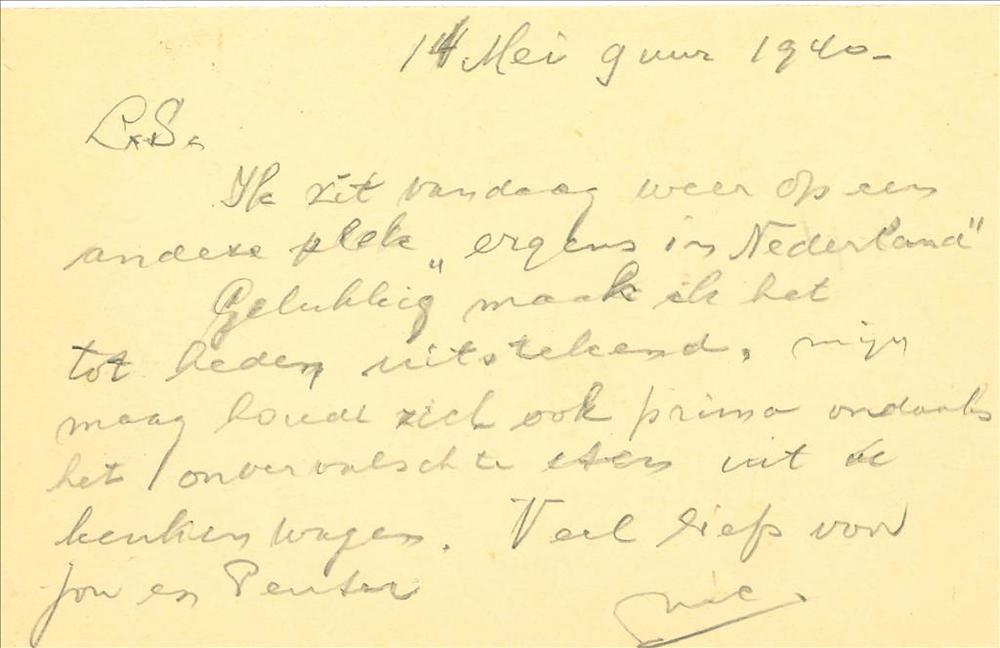 14 Mei 9 uur 1940-
L.S.
Ik zit vandaag weer op een
andere plek „ergens in Nederland"
Gelukkig maak ik het
tot heden uitstekend, mijn
maag houdt zich ook prima ondanks
het onvervalschte eten uit de
keukenwagen. Veel liefs voor
jou en Peuter
Nic.